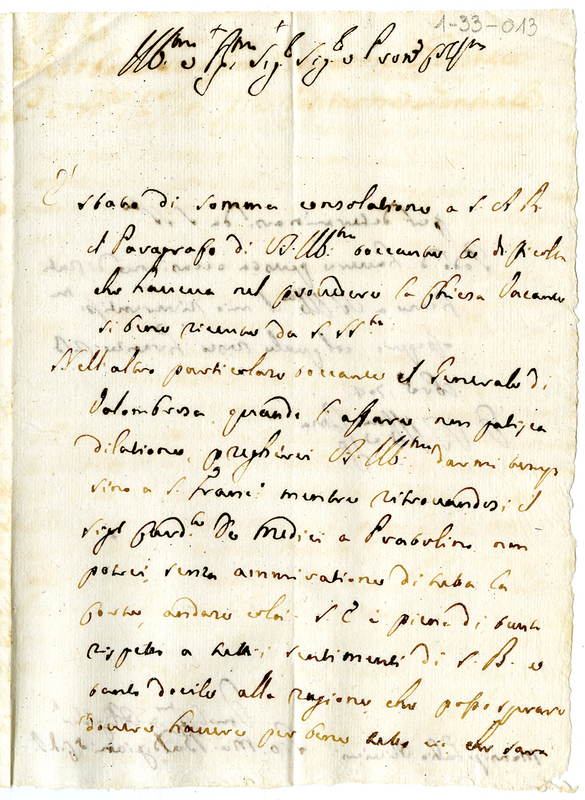 1-33-013
Ill.mo e Sig.r Sig.r e Pron
È stato di somma consolatione a S. A. R.
il Paragrafo di V. Ill.ma toccante le difficoltà
che haveva nel provedere la Chiesa Vacante
si bene ricevuto da S. S.tà
Nell'altro particolare toccante il Generale di
Valombrosa quando l'affare non patisca
dilatione, pregherei V. Ill.ma darmi temp
sino a S. Franc.o mentre ritrovandosi il
Sig.r Card.le De Medici a Pratolino non
potrei, senza ammiratione di tutta la
Corte, andare colà. S. È piena di tanto
rispetto a tutti i sentimenti di S. B. e
tanto docile alla ragione, che posso sperare
dovere havere per bene tutto ciò che sarà